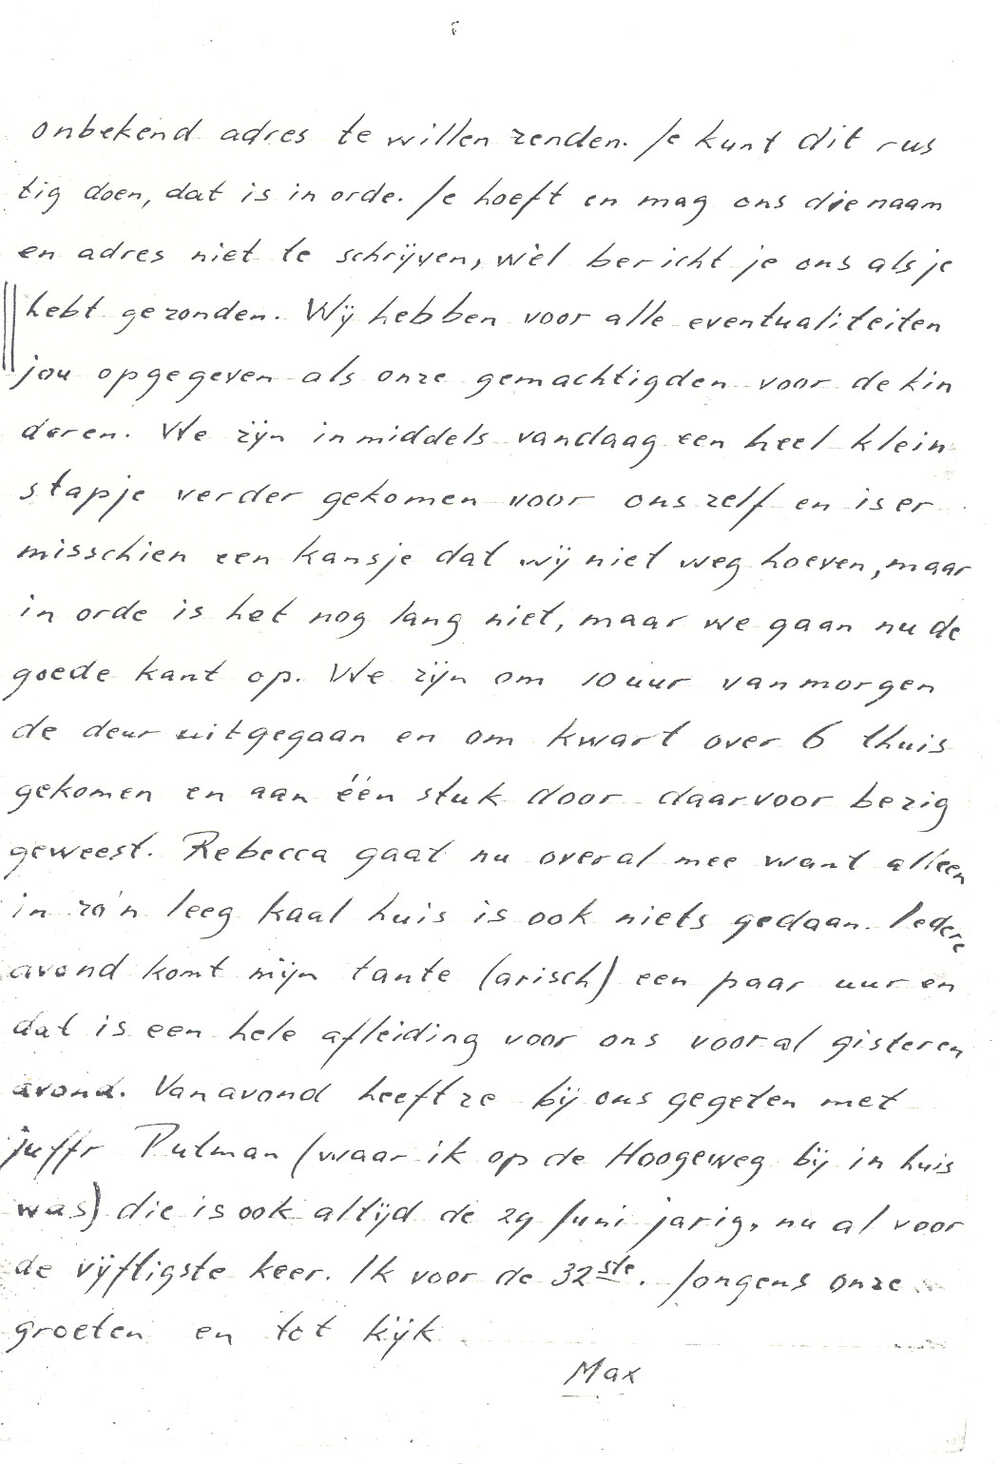 onbekend adres te willen zenden. Je kunt dit rus
tig doen, dat is in orde. Je hoeft en mag ons die naam
en adres niet te schrijven, wèl bericht je ons als je
hebt gezonden. Wij hebben voor alle eventualiteiten
jou opgegeven als onze gemachtigden voor de kin
deren. We zijn inmiddels vandaag een heel klein
stapje verder gekomen voor ons zelf en is er
misschien een kansje dat wij niet weg hoeven, maar
in orde is het nog lang niet, maar we gaan nu de
goede kant op. We zijn om 10 uur vanmorgen
de deur uitgegaan en om kwart over 6 thuis
gekomen en aan één stuk door daarvoor bezig
geweest. Rebecca gaat nu overal mee want alleen
in zo'n leeg kaal huis is ook niets gedaan. Iedere
avond komt mijn tante (arisch) een paar uur en
dat is een hele afleiding voor ons vooral gisteren
avond. Vanavond heeft ze bij ons gegeten met
juffr Putman (waar ik op de Hoogeweg bij in huis
was) die is ook altijd de 29 Juni jarig, nu al voor
de vijftigste keer. Ik voor de 32ste. Jongens onze
groeten en tot kijk
Max